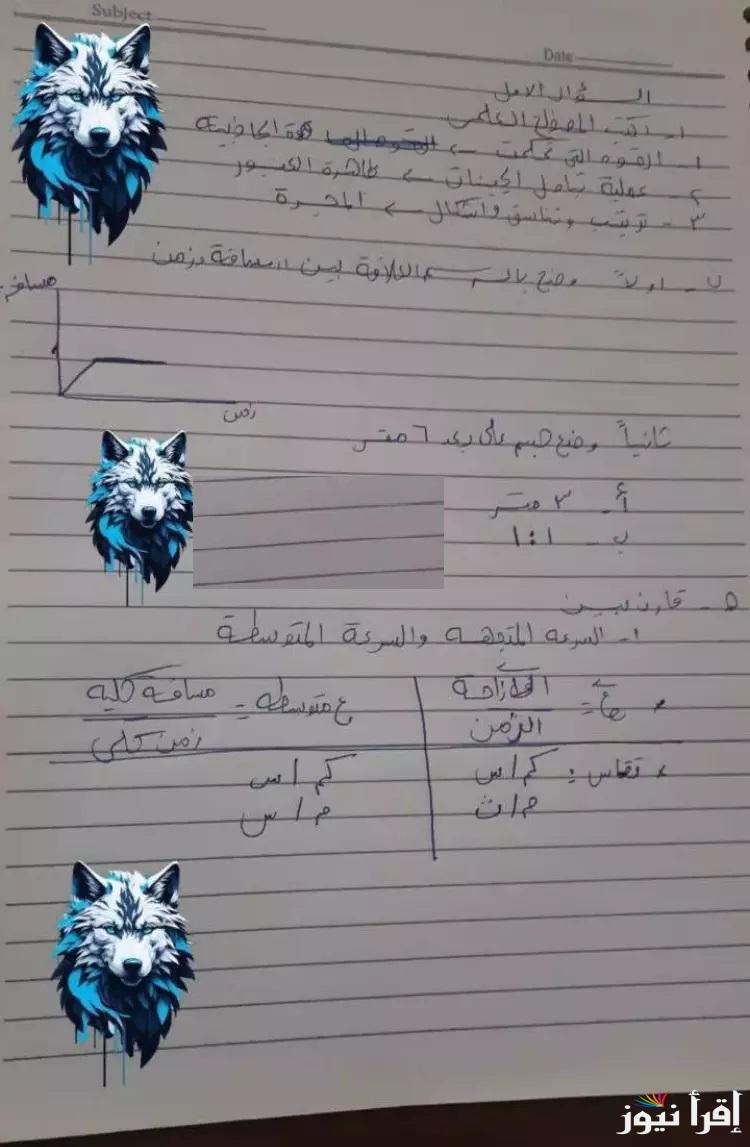 Subject
Date
السؤال الاول
أ - اكتب المصطلح العلمى
١ - القوه التى تحكمت ← قوة الجاذبية
٢ - عملية تبادل الجينات ← ظاهرة العبور
٣ - ترتيب وتناسق واشكال ← المجرة
ب - اولاً وضح بالرسم العلاقة بين المسافة وزمن
مسافه
زمن
ثانياً وضع جسم على بعد ٦ متر
أ - ٣ متر
ب - ١:١
٥ - قارن بين
١ - السرعه المتجهه والسرعة المتوسطة
ع = الازاحة / الزمن
ع متوسطه = مسافة كليه / زمن كلى
تقاس : كم/س
م/ث
كم/س
م/س
إقرأ نيوز